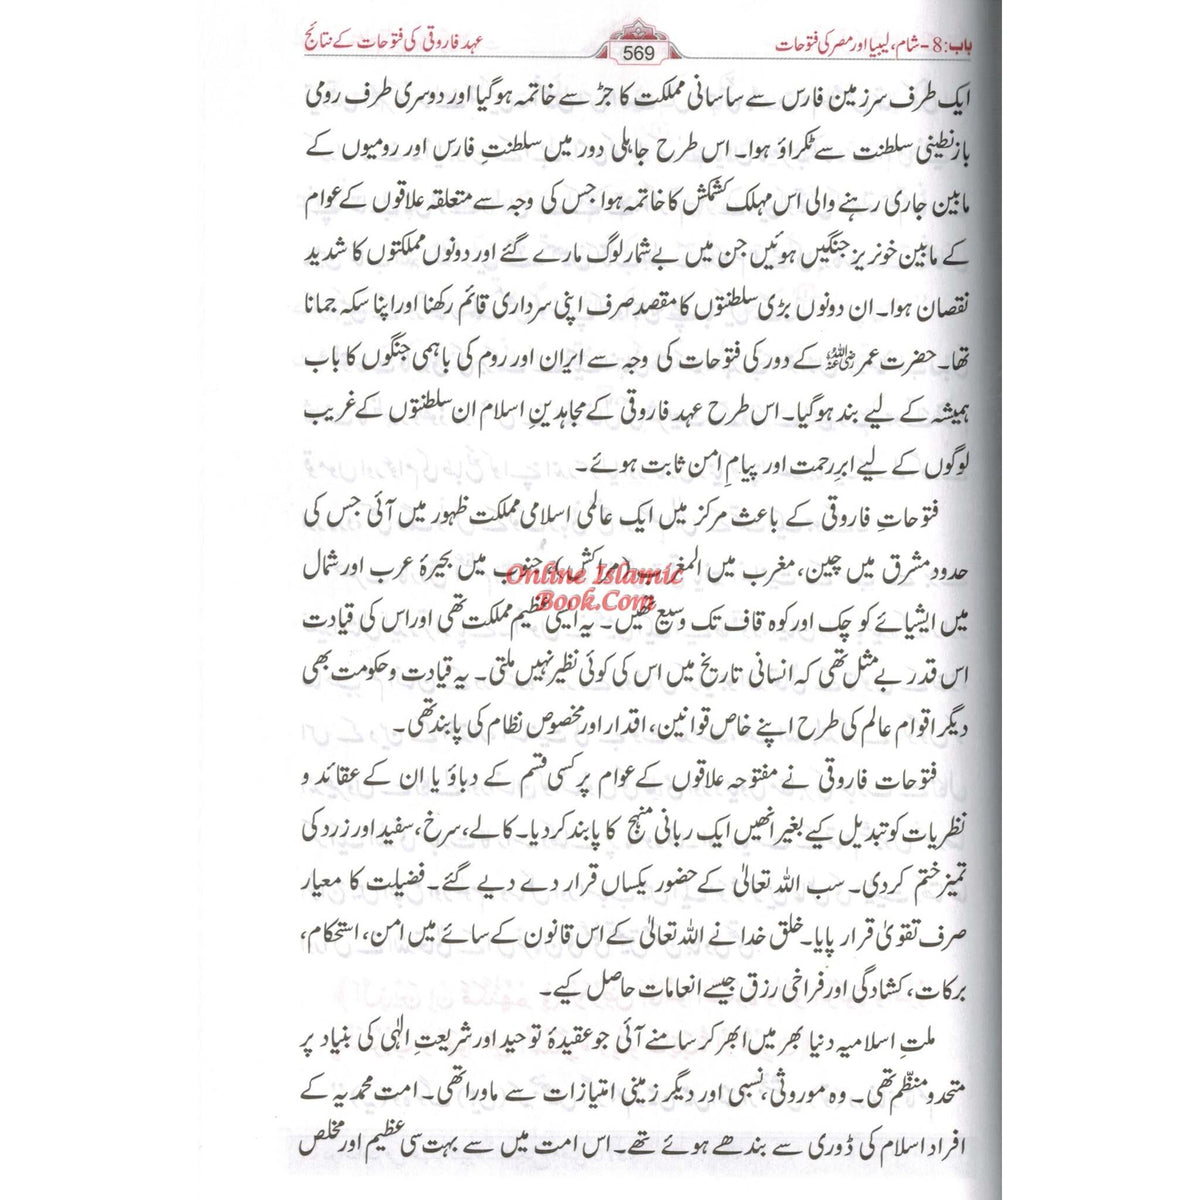 باب: 8- شام، لیبیا اور مصر کی فتوحات
569
عہد فاروقی کی فتوحات کے نتائج
ایک طرف سرزمین فارس سے ساسانی مملکت کا جڑ سے خاتمہ ہوگیا اور دوسری طرف رومی
بازنطینی سلطنت سے ٹکراؤ ہوا۔ اس طرح جاہلی دور میں سلطنتِ فارس اور رومیوں کے
مابین جاری رہنے والی اس مہلک کشمکش کا خاتمہ ہوا جس کی وجہ سے متعلقہ علاقوں کے عوام
کے مابین خونریز جنگیں ہوئیں جن میں بے شمار لوگ مارے گئے اور دونوں مملکتوں کا شدید
نقصان ہوا۔ ان دونوں بڑی سلطنتوں کا مقصد صرف اپنی سرداری قائم رکھنا اور اپنا سکہ جمانا
تھا۔ حضرت عمر رضی اللہ عنہ کے دور کی فتوحات کی وجہ سے ایران اور روم کی باہمی جنگوں کا باب
ہمیشہ کے لیے بند ہوگیا۔ اس طرح عہد فاروقی کے مجاہدینِ اسلام ان سلطنتوں کے غریب
لوگوں کے لیے ابرِ رحمت اور پیامِ امن ثابت ہوئے۔
فتوحاتِ فاروقی کے باعث مرکز میں ایک عالمی اسلامی مملکت ظہور میں آئی جس کی
حدود مشرق میں چین، مغرب میں المغرب (مراکش)، جنوب میں بحیرۂ عرب اور شمال
میں ایشیائے کو چک اور کوہ قاف تک وسیع تھیں۔ یہ ایسی عظیم مملکت تھی اور اس کی قیادت
اس قدر بے مثل تھی کہ انسانی تاریخ میں اس کی کوئی نظیر نہیں ملتی۔ یہ قیادت و حکومت بھی
دیگر اقوام عالم کی طرح اپنے خاص قوانین، اقدار اور مخصوص نظام کی پابند تھی۔
فتوحات فاروقی نے مفتوحہ علاقوں کے عوام پر کسی قسم کے دباؤ یا ان کے عقائد و
نظریات کو تبدیل کیے بغیر انھیں ایک ربانی منہج کا پابند کردیا۔ کالے، سرخ، سفید اور زرد کی
تمیز ختم کر دی۔ سب اللہ تعالیٰ کے حضور یکساں قرار دے دیے گئے۔ فضیلت کا معیار
صرف تقویٰ قرار پایا۔ خلق خدا نے اللہ تعالیٰ کے اس قانون کے سائے میں امن، استحکام،
برکات، کشادگی اور فراخی رزق جیسے انعامات حاصل کیے۔
ملتِ اسلامیہ دنیا بھر میں ابھر کر سامنے آئی جو عقیدۂ توحید اور شریعتِ الٰہی کی بنیاد پر
متحد و منظّم تھی۔ وہ موروثی، نسبی اور دیگر زمینی امتیازات سے ماورا تھی۔ امت محمدیہ کے
افراد اسلام کی ڈوری سے بندھے ہوئے تھے۔ اس امت میں سے بہت سی عظیم اور مخلص
Online Islamic
Book.Com